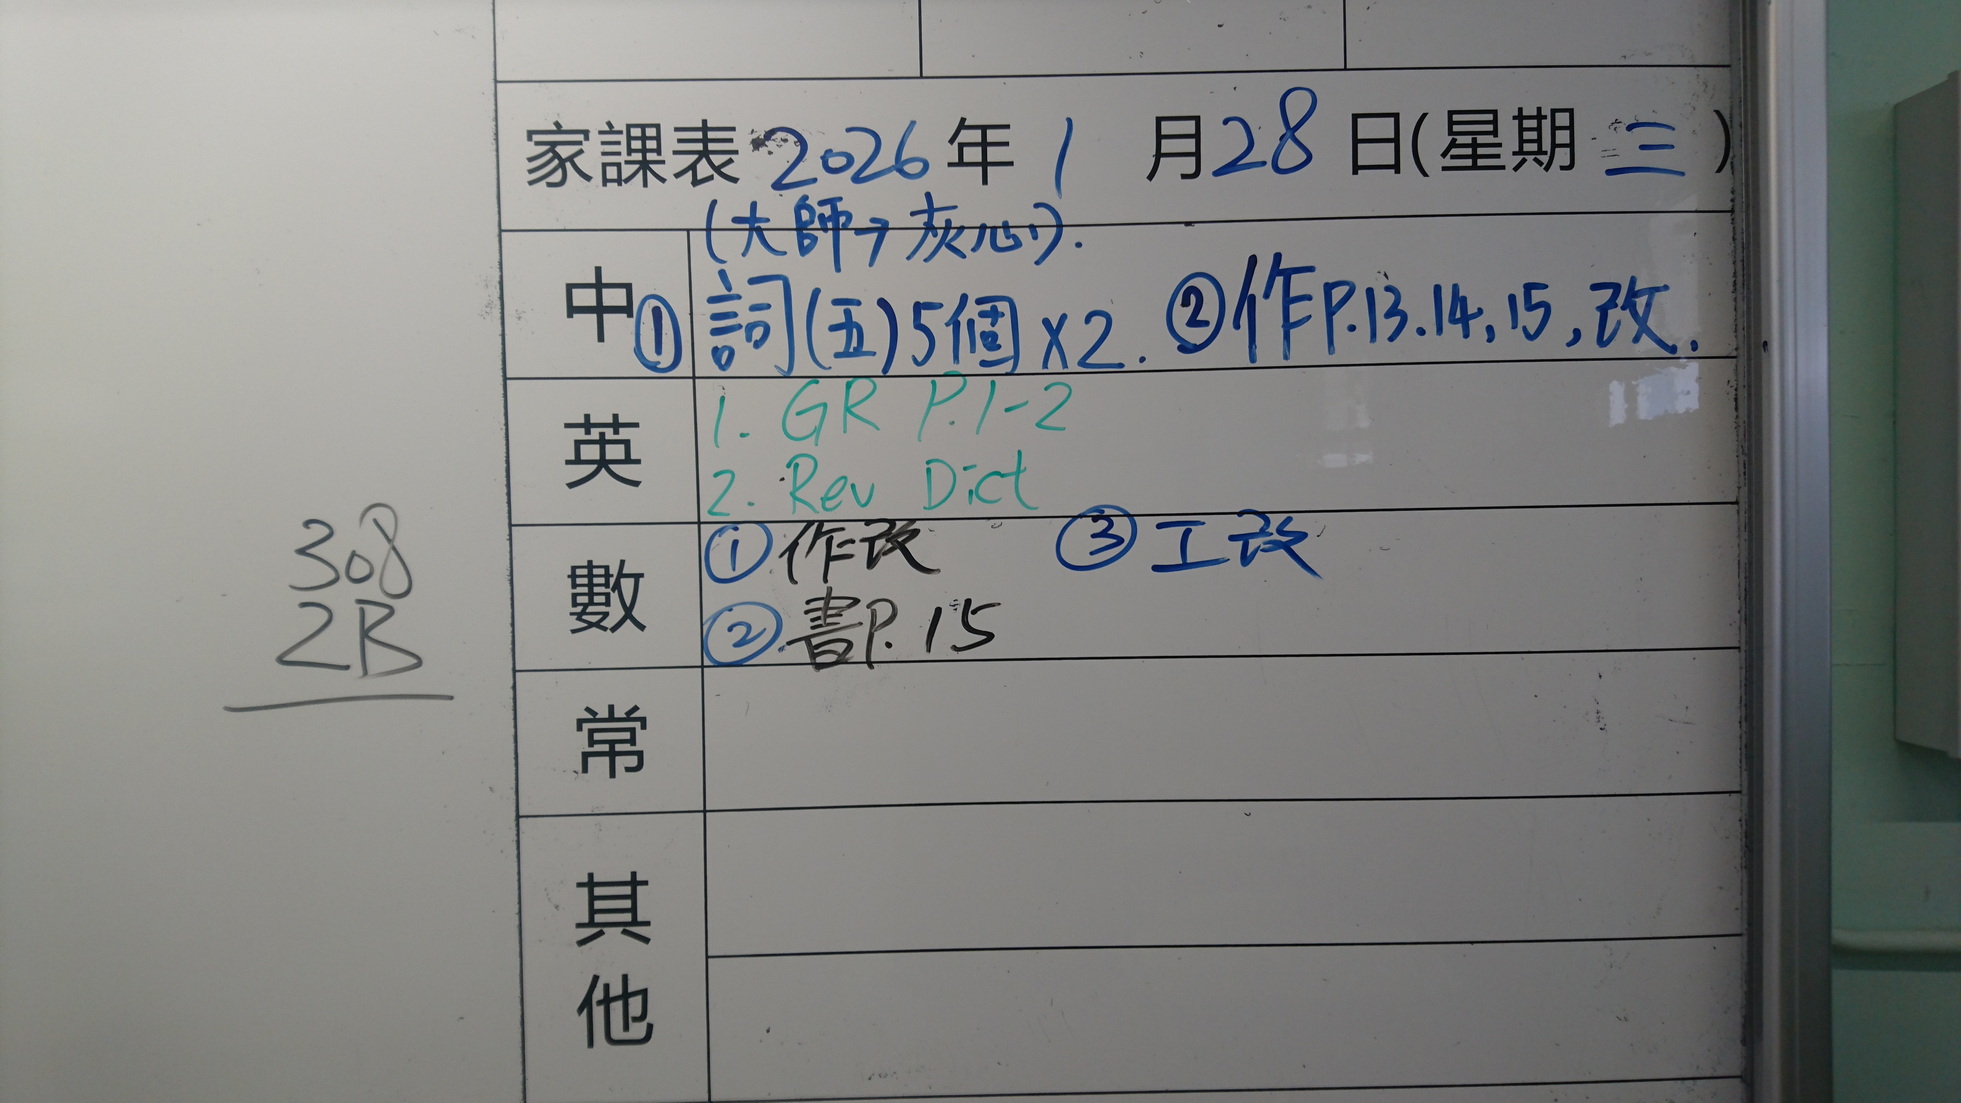 家課表 2026 年 1 月 28 日(星期 三 )
(大師→灰心).
中 ① 詞(五)5個×2. ②作P.13.14,15,改.
英
1. GR P.1-2
2. Rev Dict
數
①作改 ③工改
②書P.15
常
其他
308
2B